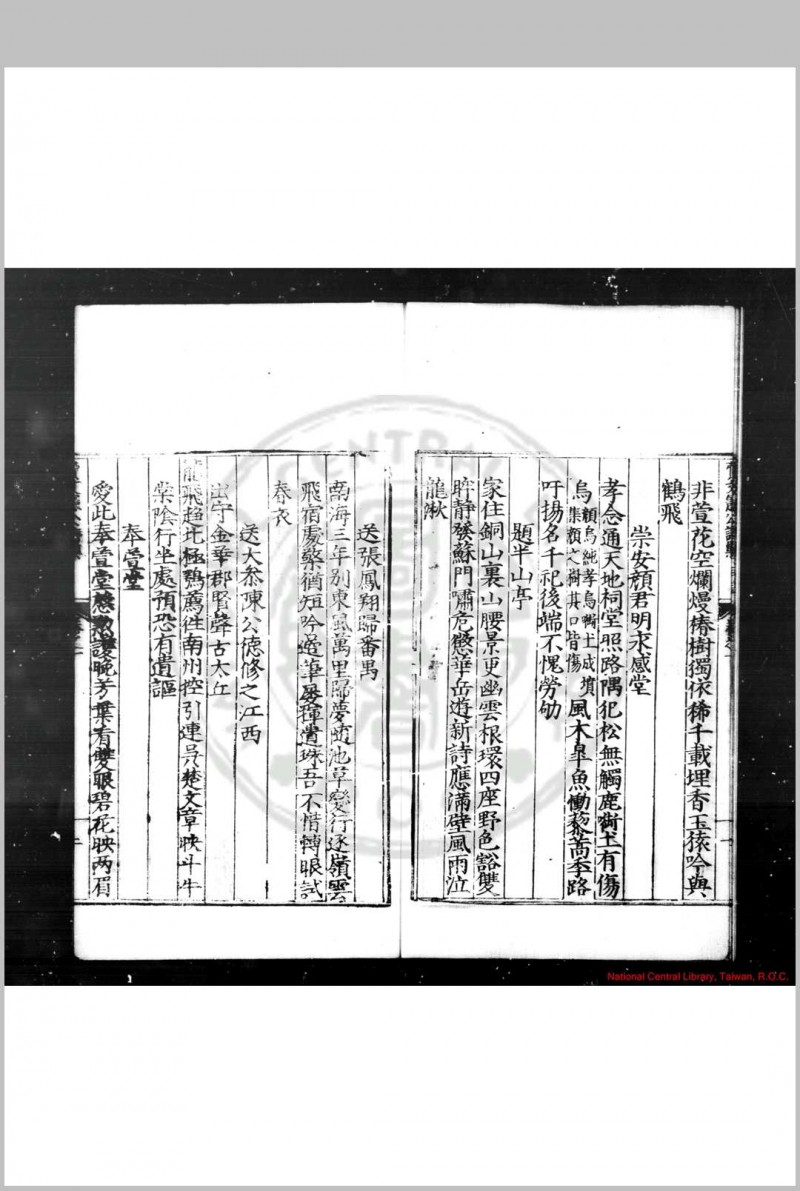 非萱花空爛熳椿樹獨依稀千載埋香玉猿吟與
鶴飛
崇安顏君明求感堂
孝念通天地祠堂照路隅犯松無觸鹿銜土有傷
烏顏烏純孝烏銜土成墳集顏之樹其口皆傷風木皐魚慟藜蒿季路
吁揚名千祀後端不愧劳劬
題半山亭
家住銅山裏山腰景更幽雲根環四座野色豁雙
眸静發蘇門嘯危懲華岳遊新詩應滿壁風雨泣
龍湫
送張鳳翔歸番禺
南海三年别東風萬里歸夢隨池草變行逐嶺雲
飛宿處檠猶短吟邊筆展揮遺珠吾不惜轉眼試
春衣
送大叅陳公德修之江西
出守金華郡賢聲古太丘
龍飛趨北極鶚薦徃南州控引連吳楚文章映斗牛
棠陰行坐處預恐有遺謳
奉萱堂
愛此奉萱堂慇懃護晚芳葉看雙眼碧花映两眉
National Central Library, Taiwan, R.O.C.